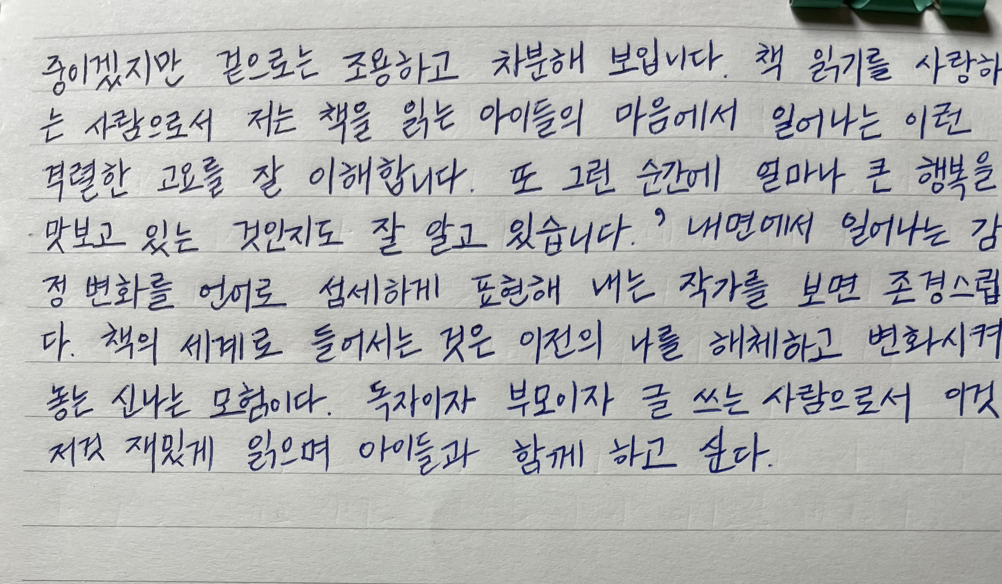 중이겠지만 겉으로는 조용하고 차분해 보입니다. 책 읽기를 사랑하
는 사람으로서 저는 책을 읽는 아이들의 마음에서 일어나는 이런
격렬한 고요를 잘 이해합니다. 또 그런 순간에 얼마나 큰 행복을
맛보고 있는 것인지도 잘 알고 있습니다.’ 내면에서 일어나는 감
정 변화를 언어로 섬세하게 표현해 내는 작가를 보면 존경스럽
다. 책의 세계로 들어서는 것은 이전의 나를 해체하고 변화시켜
놓는 신나는 모험이다. 독자이자 부모이자 글 쓰는 사람으로서 이것
저것 재밌게 읽으며 아이들과 함께 하고 싶다.